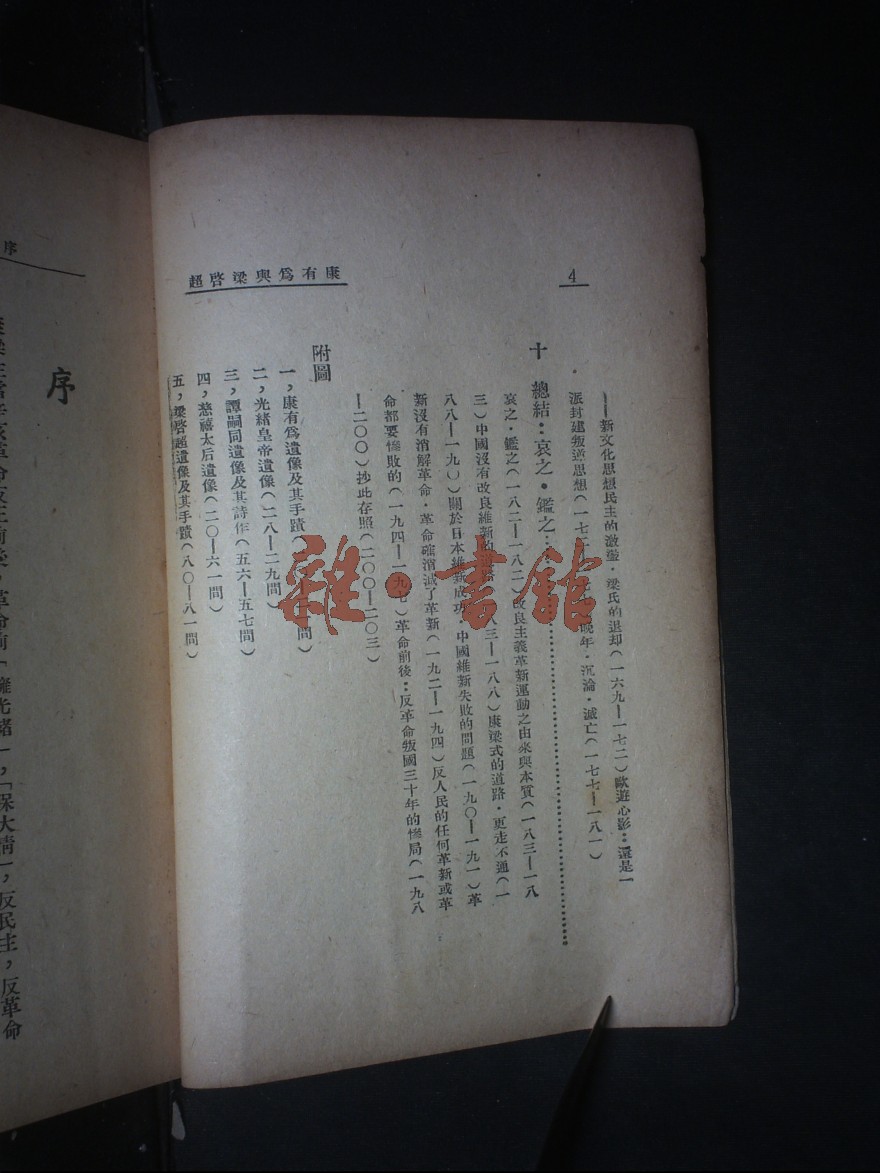 4
康有爲與梁啓超
——新文化思想民主的激盪·梁氏的退却(一六九—一七二)歐遊心影：還是一
派封建叛逆思想(一七二 晚年·沉淪·滅亡(一七七—一八一)
十 總結：哀之·鑑之……
哀之·鑑之(一八二—一八二)改良主義革新運動之由來與本質(一八三—一八
三)中國沒有改良維新的 八三—一八八)康梁式的道路·更走不通(一
八八—一九〇)關於日本維新成功·中國維新失敗的問題(一九〇—一九一)革
新沒有消解革命·革命確消滅了革新(一九二—一九四)反人民的任何革新或革
命都要慘敗的(一九四—一九七)革命前後：反革命叛國三十年的慘局(一九八
—二〇〇)抄此存照(二〇〇—二〇三)
附圖
一，康有爲遺像及其手蹟( 間)
二，光緒皇帝遺像(二八—二九間)
三，譚嗣同遺像及其詩作(五六—五七間)
四，慈禧太后遺像(二〇—六一間)
五，梁啓超遺像及其手蹟(八〇—八一間)
雜·書館
序
序
革命前「擁光緒」，「保大清」，反民主，反革命